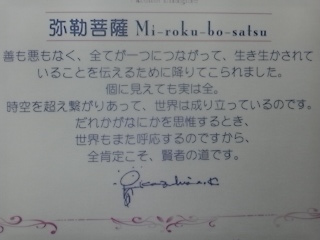 弥勒菩薩 Mi-roku-bo-satsu
善も悪もなく、全てが一つにつながって、生き生かされて
いることを伝えるために降りてこられました。
個に見えても実は全。
時空を超え繋がりあって、世界は成り立っているのです。
だれかがなにかを思惟するとき、
世界もまた呼応するのですから、
全肯定こそ、賢者の道です。